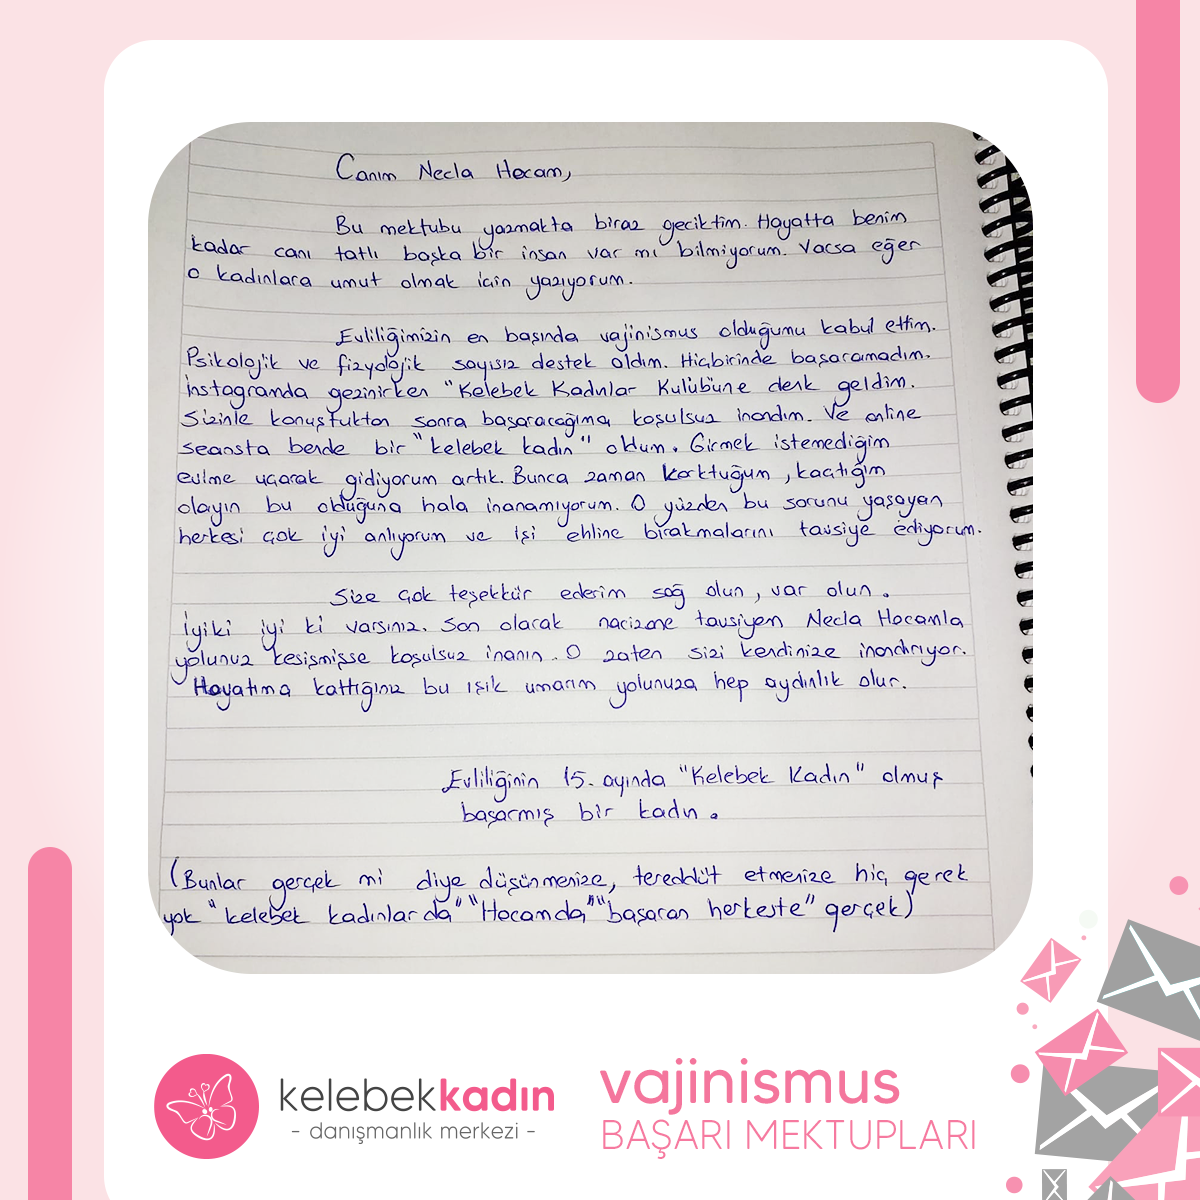 Canım Necla Hocam,
Bu mektubu yazmakta biraz geciktim. Hayatta benim
kadar canı tatlı başka bir insan var mı bilmiyorum. Varsa eğer
o kadınlara umut olmak için yazıyorum.
Evliliğimizin en başında vajinismus olduğumu kabul ettim.
Psikolojik ve fizyolojik sayısız destek aldım. Hiçbirinde başaramadım.
İnstagramda gezinirken "Kelebek Kadınlar Kulübü'ne denk geldim.
Sizinle konuştuktan sonra başaracağıma koşulsuz inandım. Ve online
seansta bende bir "kelebek kadın" oldum. Girmek istemediğim
evime uçarak gidiyorum artık. Bunca zaman korktuğum, kaçtığım
olayın bu olduğuna hala inanamıyorum. O yüzden bu sorunu yaşayan
herkesi çok iyi anlıyorum ve işi ehline bırakmalarını tavsiye ediyorum.
Size çok teşekkür ederim sağ olun, var olun.
İyiki iyi ki varsınız. Son olarak nacizane tavsiyem Necla Hocamla
yolunuz kesişmişse koşulsuz inanın. O zaten sizi kendinize inandırıyor.
Hayatıma kattığınız bu ışık umarım yolunuza hep aydınlık olur.
Evliliğinin 15. ayında "Kelebek Kadın" olmuş
başarmış bir kadın.
(Bunlar gerçek mi diye düşünmenize, tereddüt etmenize hiç gerek
yok "kelebek kadınlarda" "Hocamda" "başaran herkeste" gerçek)
kelebekkadın
- danışmanlık merkezi -
vajinismus
BAŞARI MEKTUPLARI